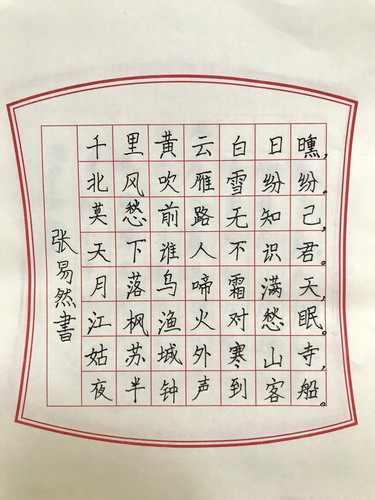 千里黄云白日曛，
北风吹雁雪纷纷。
莫愁前路无知己，
天下谁人不识君。
月落乌啼霜满天，
江枫渔火对愁眠。
姑苏城外寒山寺，
夜半钟声到客船。
张易然書